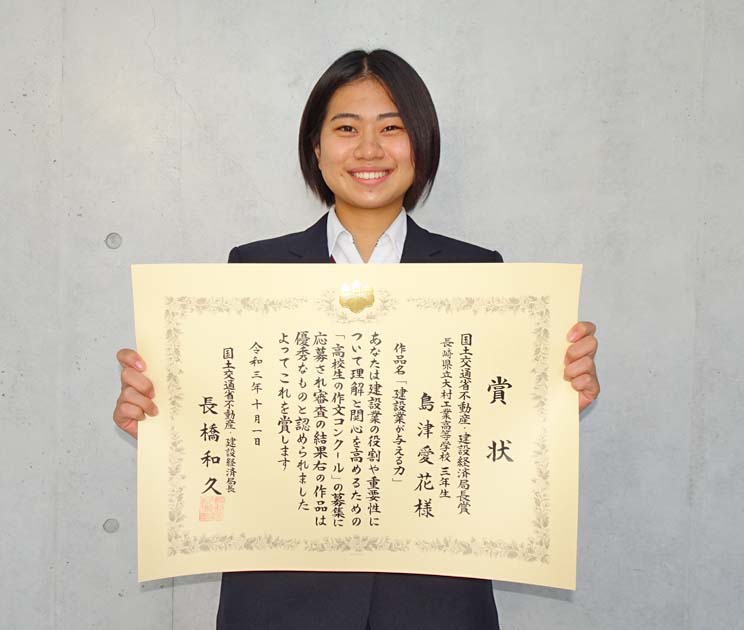 賞状
国土交通省不動産・建設経済局長賞
長崎県立大村工業高等学校 三年生
島津愛花様
作品名「建設業が与える力」
あなたは建設業の役割や重要性に
ついて理解と関心を高めるための
「高校生の作文コンクール」の募集に
応募され審査の結果右の作品は
優秀なものと認められました
よってこれを賞します
令和三年十月一日
国土交通省不動産・建設経済局長
長橋和久